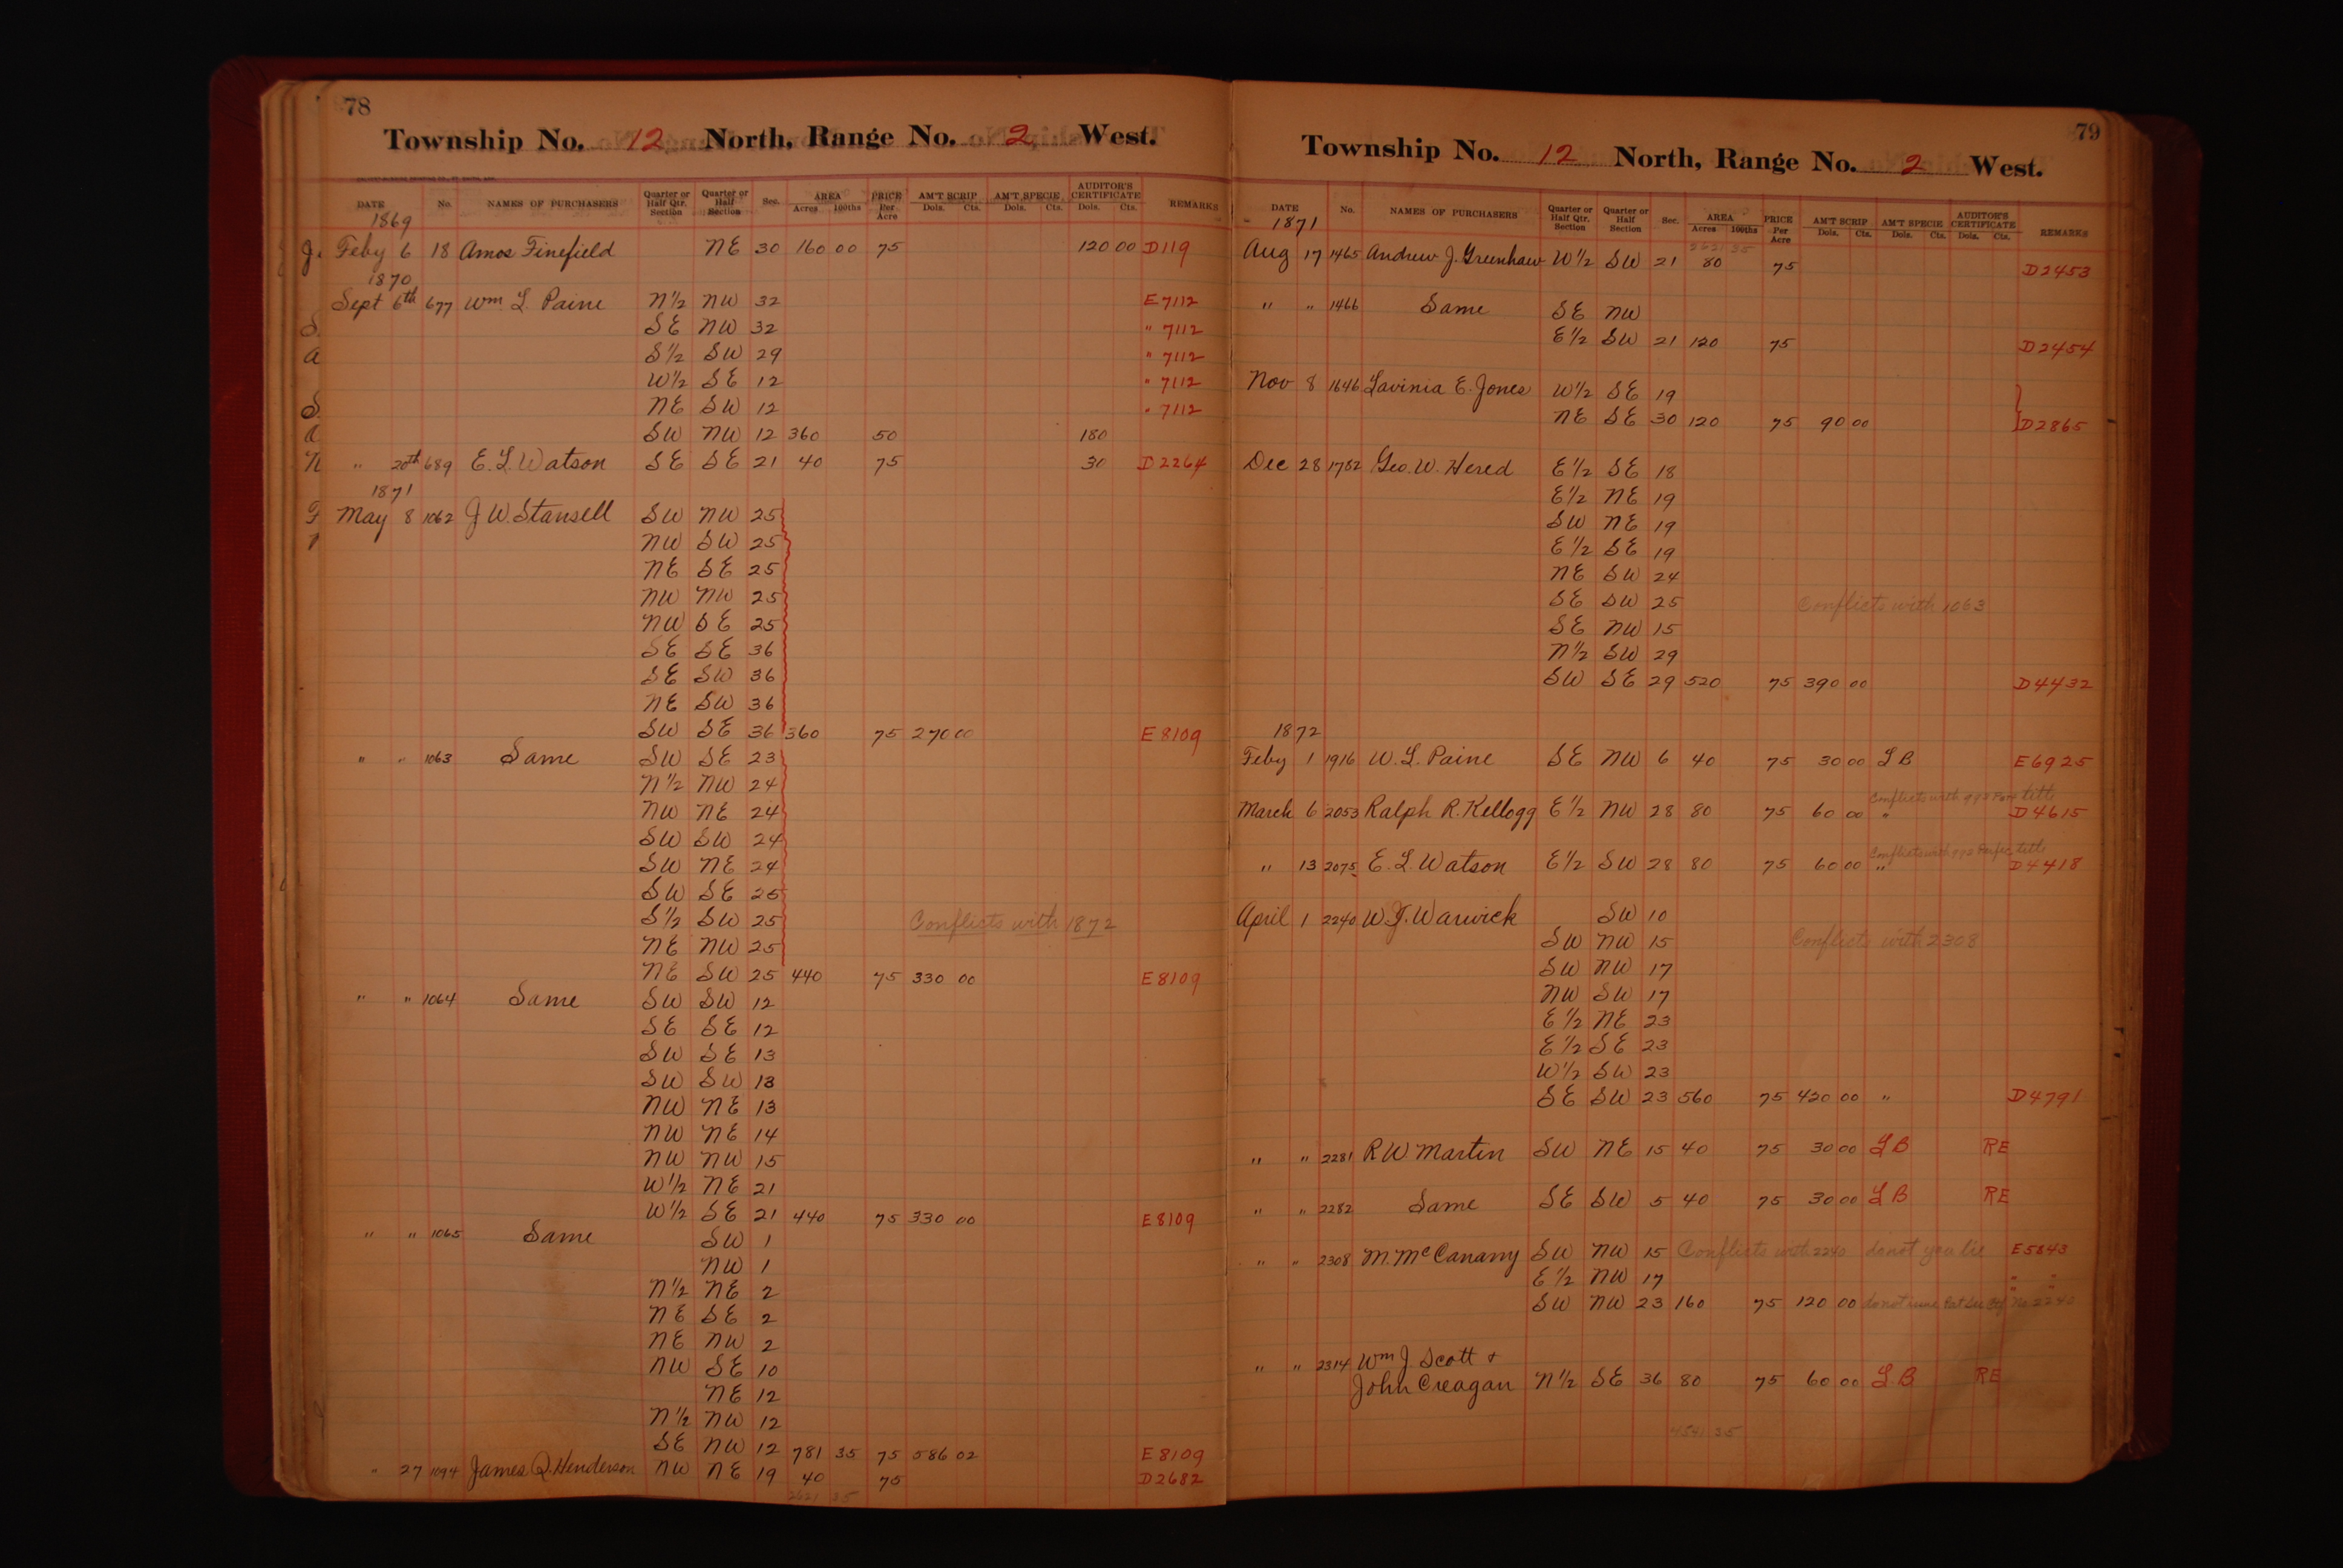 78
Township No. 12 North, Range No. 2 West.
DATE No. NAMES OF PURCHASERS Quarter or Half Qtr. Section Quarter or Half Section Sec. AREA Acres 100ths PRICE Per Acre AM'T SCRIP Dols. Cts. AM'T SPECIE Dols. Cts. AUDITOR'S CERTIFICATE Dols. Cts. REMARKS
1869
Feby 6 18 Amos Finefield NE 30 160 00 75 120 00 D119
1870
Sept 6th 677 Wm L. Paine N½ NW 32 E7112
SE NW 32 " 7112
S½ SW 29 " 7112
W½ SE 12 " 7112
NE SW 12 " 7112
SW NW 12 360 50 180
" 20th 689 E. L. Watson SE SE 21 40 75 30 D2264
1871
May 8 1062 J W. Stansell SW NW 25
NW SW 25
NE SE 25
NW NW 25
NW SE 25
SE SE 36
SE SW 36
NE SW 36
SW SE 36 360 75 270 00 E8109
" " 1063 Same SW SE 23
N½ NW 24
NW NE 24
SW SW 24
SW NE 24
SW SE 25
S½ SW 25 Conflicts with 1872
NE NW 25
NE SW 25 440 75 330 00 E8109
" " 1064 Same SW SW 12
SE SE 12
SW SE 13
SW SW 13
NW NE 13
NW NE 14
NW NW 15
W½ NE 21
W½ SE 21 440 75 330 00 E8109
" " 1065 Same SW 1
NW 1
N½ NE 2
NE SE 2
NE NW 2
NW SE 10
NE 12
N½ NW 12
SE NW 12 781 35 75 586 02 E8109
" 27 1094 James Q. Henderson NW NE 19 40 75 D2682
2621 35
79
Township No. 12 North, Range No. 2 West.
DATE No. NAMES OF PURCHASERS Quarter or Half Qtr. Section Quarter or Half Section Sec. AREA Acres 100ths PRICE Per Acre AM'T SCRIP Dols. Cts. AM'T SPECIE Dols. Cts. AUDITOR'S CERTIFICATE Dols. Cts. REMARKS
1871
2621 35
Aug 17 1465 Andrew J. Greenhaw W½ SW 21 80 75 D2453
" " 1466 Same SE NW
E½ SW 21 120 75 D2454
Nov 8 1646 Lavinia E. Jones W½ SE 19
NE SE 30 120 75 90 00 D2865
Dec 28 1782 Geo. W. Hered E½ SE 18
E½ NE 19
SW NE 19
E½ SE 19
NE SW 24
SE SW 25 Conflicts with 1063
SE NW 15
N½ SW 29
SW SE 29 520 75 390 00 D4432
1872
Feby 1 1916 W. L. Paine SE NW 6 40 75 30 00 L B E6925
Conflicts with title
March 6 2053 Ralph R. Kellogg E½ NW 28 80 75 60 00 " D4615
Conflicts with title
" 13 2075 E. L. Watson E½ SW 28 80 75 60 00 " D4418
April 1 2240 W. J. Warwick SW 10
SW NW 15 Conflicts with 2308
SW NW 17
NW SW 17
E½ NE 23
E½ SE 23
W½ SW 23
SE SW 23 560 75 420 00 " D4791
" " 2281 R W Martin SW NE 15 40 75 30 00 L B RE
" " 2282 Same SE SW 5 40 75 30 00 L B RE
" " 2308 M. McCanany SW NW 15 Conflicts with 2240 do not E5843
E½ NW 17 " "
SW NW 23 160 75 120 00 do not No 2240
" " 2314 Wm J. Scott +
John Creagan N½ SE 36 80 75 60 00 L. B. RE
4541 35